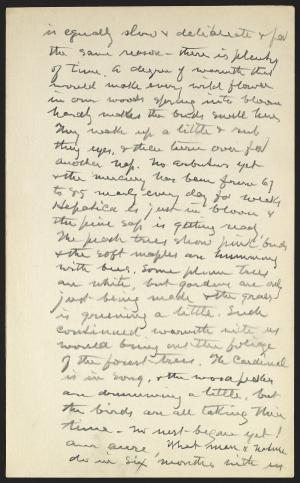 is equally slow & deliberate & for
the same reason – there is plenty
of time. A degree of warmth that
would make every wild flower
in our woods spring into bloom
hardly makes the buds swell here.
They wake up a little & rub
their eyes, & then turn over for
another nap. No arbutus yet
& the mercury has been from 67
to 85 nearly every day for weeks
Hepatica is just in bloom &
the pine sap is getting ready,
The peach trees show pink buds
& the soft maples are humming
with bees. Some plum trees
are white, but gardens are only
just being made & the grass
is greening a little. Such
continued warmth with us
would bring out the foliage
of the forest trees. The Cardinal
is in song, & the woodpeckers
are drumming a little, but
the birds are all taking their
time – no nest begun yet!
am sure. What man & nature
do in six months with us